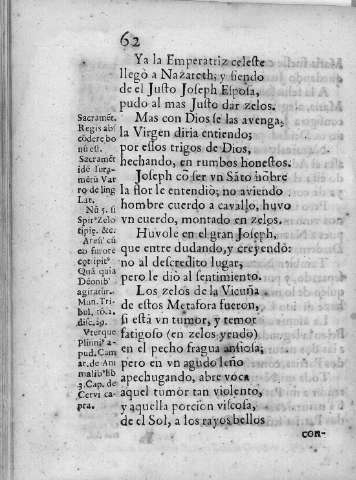 62
Ya la Emperatriz celeste
llegò a Nazareth; y siendo
de el Justo Joseph Esposa,
pudo al mas Justo dar zelos.
Mas con Dios se las avenga;
la Virgen diria entiendo;
por estos trigos de Dios,
hechando, en rumbos honestos.
Joseph cõ ser vn Sãto hõbre
la flor le entendiò; no aviendo
hombre cuerdo a cavallo, huvo
vn cuerdo, montado en zelos.
Huvole en el gran Joseph,
que entre dudando, y creyendo:
no al descredito lugar,
pero le diò al sentimiento.
Los zelos de la Vicuña
de estos Metafora fueron,
si està vn tumor, y temor
fatigoso (en zelos yendo)
en el pecho fragua ansiosa;
pero en vn agudo leño
apechugando, abre voca
aquel tumor tan violento,
y aquella porcion viscosa,
de el Sol, a los rayos bellos
con-
Sacramẽt.
Regis abs
cõdere bo
nũ est.
Sacramẽt
idẽ Iura-
mẽtũ Var
ro de ling
Lat.
Nũ 5. si
Spir⁹ Zelo
tipię. &c.
co furore
Quã quia
agitatur.
Man. Tri-
bul, to. 1.
disc. 29.
Vterque
Plinni⁹ a-
pud. Cam
ar. de Ani
malib⁹ lib
3. Cap. de
Cervi ca-
pra.